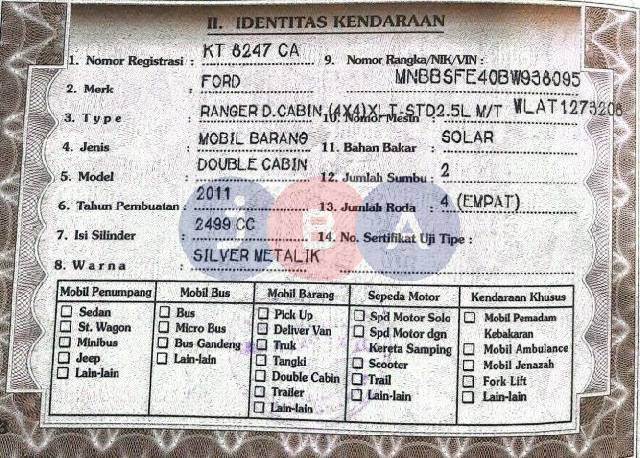 II. IDENTITAS KENDARAAN
1. Nomor Registrasi : KT 8247 CA
2. Merk : FORD
3. Type : RANGER D.CABIN (4X4)XLT-STD2.5L M/T
4. Jenis : MOBIL BARANG
5. Model : DOUBLE CABIN
6. Tahun Pembuatan : 2011
7. Isi Silinder : 2499 CC
8. Warna : SILVER METALIK
9. Nomor Rangka/NIK/VIN : MNBBSFE40BW938095
10. Nomor Mesin : WLAT1273206
11. Bahan Bakar : SOLAR
12. Jumlah Sumbu : 2
13. Jumlah Roda : 4 (EMPAT)
14. No. Sertifikat Uji Tipe :
JBA
Mobil Penumpang
Sedan
St. Wagon
Minibus
Jeep
Lain-lain
Mobil Bus
Bus
Micro Bus
Bus Gandeng
Lain-lain
Mobil Barang
Pick Up
Deliver Van
Truk
Tangki
Double Cabin
Trailer
Lain-lain
Sepeda Motor
Spd Motor Solo
Spd Motor dgn
Kereta Samping
Scooter
Trail
Lain-lain
Kendaraan Khusus
Mobil Pemadam
Kebakaran
Mobil Ambulance
Mobil Jenazah
Fork Lift
Lain-lain